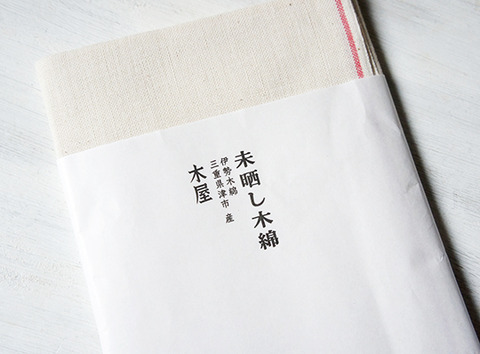 未晒し木綿
伊勢木綿
三重県津市 産
木屋